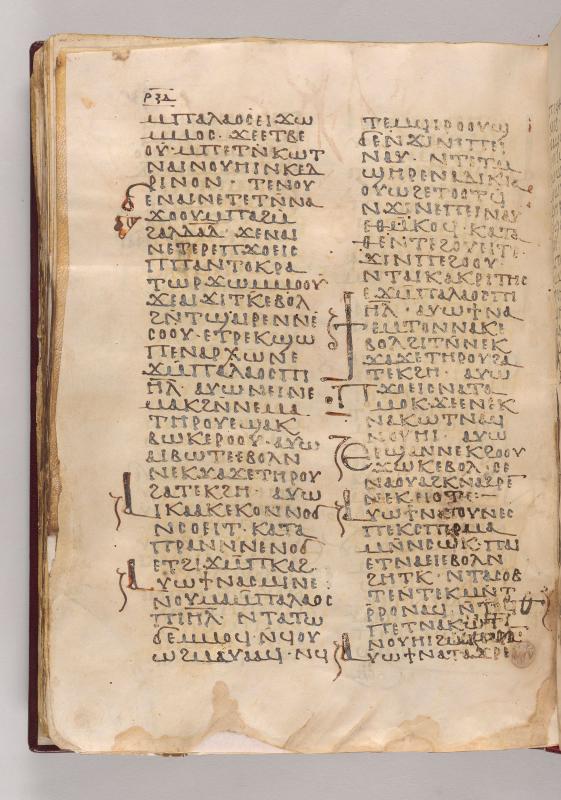 ⲣⲝⲇ
ⲙⲡⲁⲗⲁⲟⲥⲉⲓϫⲱ
ⲙⲙⲟⲥ· ϫⲉⲉⲧⲃⲉ
ⲟⲩ· ⲙⲡⲉⲧⲛⲕⲱⲧ
ⲛⲁⲓⲛⲟⲩⲏⲓⲛⲕⲉⲇ
ⲣⲓⲛⲟⲛ· ⲧⲉⲛⲟⲩ
ϭⲉⲛⲁⲓⲛⲉⲧⲉⲧⲛⲛⲁ
ϫⲟⲟⲩⲙⲡⲁϩⲙ
ϩⲁⲗⲇⲁⲇ· ϫⲉⲛⲁⲓ
ⲛⲉⲧⲉⲣⲉⲡϫⲟⲉⲓⲥ
ⲡⲡⲁⲛⲧⲟⲕⲣⲁ
ⲧⲱⲣϫⲱⲙⲙⲟⲟⲩ
ϫⲉⲁⲓϫⲓⲧⲕⲉⲃⲟⲗ
ϩⲛⲧⲱⲁⲓⲣⲉⲛⲛⲉ
ⲥⲟⲟⲩ· ⲉⲧⲣⲉⲕϣⲱ
ⲡⲉⲛⲁⲣⲭⲱⲛⲉ
ϫⲙⲡⲁⲗⲁⲟⲥⲡⲓ
ⲏⲗ· ⲁⲩⲱⲛⲉⲓⲛⲉ
ⲙⲁⲕϩⲛⲛⲉⲙⲁ
ⲧⲏⲣⲟⲩⲉϣⲁⲕ
ⲃⲱⲕⲉⲣⲟⲟⲩ· ⲁⲩⲱ
ⲁⲓⲃⲱⲧⲉⲉⲃⲟⲗⲛ
ⲛⲉⲕϫⲁϫⲉⲧⲏⲣⲟⲩ
ϩⲁⲧⲉⲕϩⲏ· ⲁⲩⲱ
ⲁⲓⲕⲁⲁⲕⲉⲕⲟⲛⲛⲟϭ
ⲛⲥⲟⲉⲓⲧ· ⲕⲁⲧⲁ
ⲡⲣⲁⲛⲛⲛⲉⲛⲟϭ
ⲉⲧϩⲓϫⲙⲡⲕⲁϩ
ⲁⲩⲱϯⲛⲁⲥⲙⲓⲛⲉ
ⲛⲟⲩⲙⲁⲙⲡⲁⲗⲁⲟⲥ
ⲡⲓⲏⲗ· ⲛⲧⲁⲧⲱ
ϭⲉⲙⲙⲟϥ· ⲛϥⲟⲩ
ⲱϩⲙⲁⲩⲁⲁϥ· ⲛϥ
ⲧⲉⲙϥⲓⲣⲟⲟⲩϣ
ϭⲉⲛϫⲓⲛⲡⲉⲓ
ⲛⲁⲩ· ⲛⲧⲉⲧⲙ
ϣⲏⲣⲉⲛⲁⲇⲓⲕⲓⲁ
ⲟⲩⲱϩⲉⲧⲟⲟⲧϥ
ⲛϫⲓⲛⲉⲡⲉⲓⲛⲁⲩ
ⲉⲑⲙⲕⲟϥ· ⲕⲁⲧⲁ
ⲑⲉⲛⲧⲉϩⲟⲩⲉⲓⲧⲉ
ϫⲓⲛⲡⲉϩⲟⲟⲩ
ⲛⲧⲁⲓⲕⲁⲕⲣⲓⲧⲏⲥ
ⲉϫⲙⲡⲁⲗⲁⲟⲥⲡⲓ
ⲏⲗ· ⲁⲩⲱϯⲛⲁ
ϯⲉⲙⲧⲟⲛⲛⲁⲕⲉ
ⲃⲟⲗϩⲓⲧⲛⲛⲉⲕ
ϫⲁϫⲉⲧⲏⲣⲟⲩϩⲁ
ⲧⲉⲕϩⲏ· ⲁⲩⲱ
ⲡϫⲟⲉⲓⲥⲛⲁⲧⲁ
ⲙⲟⲕ· ϫⲉⲉⲛⲉⲕ
ⲛⲁⲕⲱⲧⲛⲁϥ
ⲛⲟⲩⲏⲓ· ⲁⲩⲱ
ⲉⲣϣⲁⲛⲛⲉⲕϩⲟⲟⲩ
ϫⲱⲕⲉⲃⲟⲗ· ⲥⲉ
ⲛⲁⲟⲩⲁϩⲕⲛⲁϩⲣⲉ
ⲛⲉⲕⲉⲓⲟⲧⲉ:
ⲁⲩⲱϯⲛⲁⲧⲟⲩⲛⲉⲥ
ⲡⲉⲕⲥⲡⲉⲣⲙⲁ
ⲙⲛⲛⲥⲱⲕ· ⲡⲁⲓ
ⲉⲧⲛⲁⲉⲓⲉⲃⲟⲗⲛ
ϩⲏⲧⲕ· ⲛⲧⲁⲥⲟⲃ
ⲧⲉⲛⲧⲉⲕⲙⲛⲧ
ⲣⲣⲟⲛⲁϥ· ⲛⲧⲟϥ
ⲡⲉⲧⲛⲁⲕⲱⲧⲓ
ⲛⲟⲩⲏⲓ
ⲁⲩⲱϯⲛⲁⲧⲁϫⲣⲉ